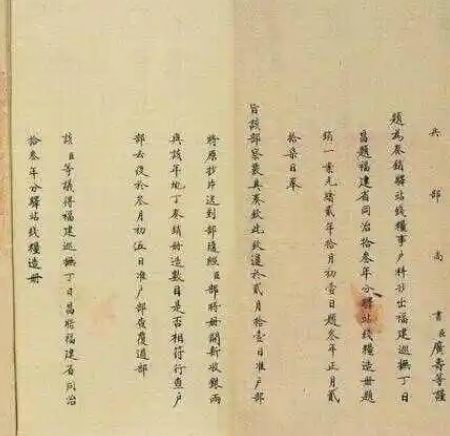 兵部尚書臣廣壽等謹
題為奏銷驛站錢糧事戶科抄出福建巡撫丁日
昌題福建省同治拾叁年分驛站錢糧造冊題
銷一案光緒貳年拾月初壹日題叁年正月貳
拾柒日奉
旨該部察覈具奏欽此欽遵於貳月拾壹日准戶部
將原抄片送到部隨經臣部將冊開新收銀兩
與該年地丁奏銷冊造數目是否相符行查戶
部去後於叁月初五日准戶部查覆過部
該臣等議得福建巡撫丁日昌將福建省同治
拾叁年分驛站錢糧造冊